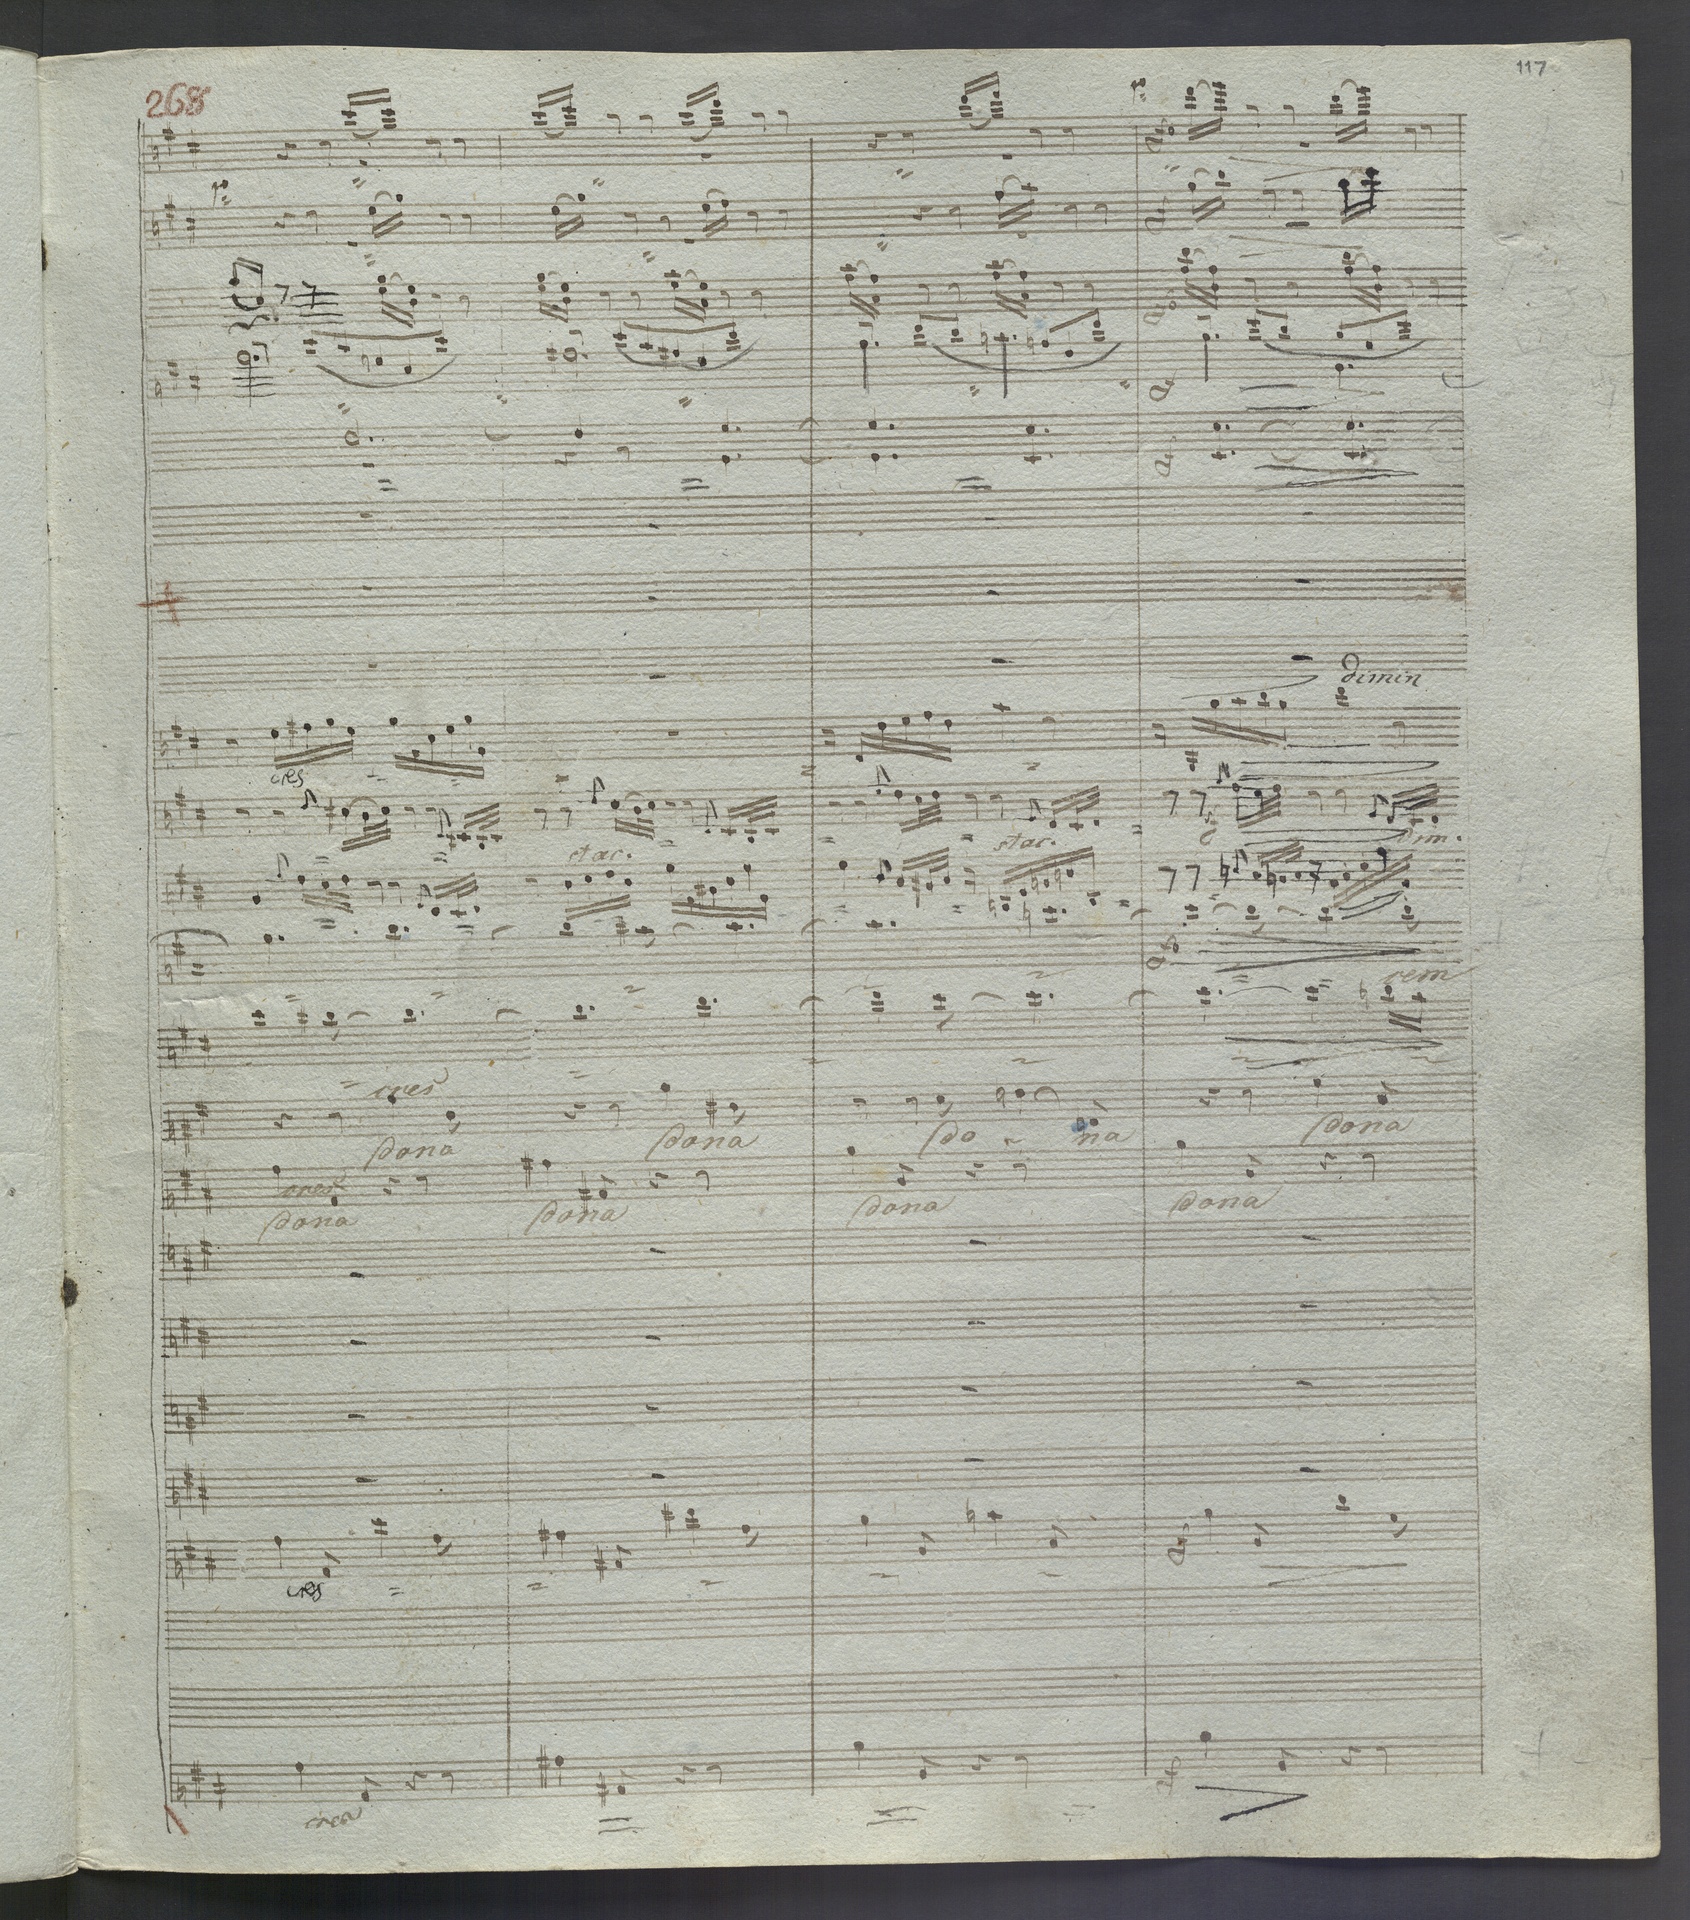 117
268
dimin
cres
stac.
stac.
dim.
cres
dona
dona
do na
dona
cres
dona
dona
dona
dona
cres
cres